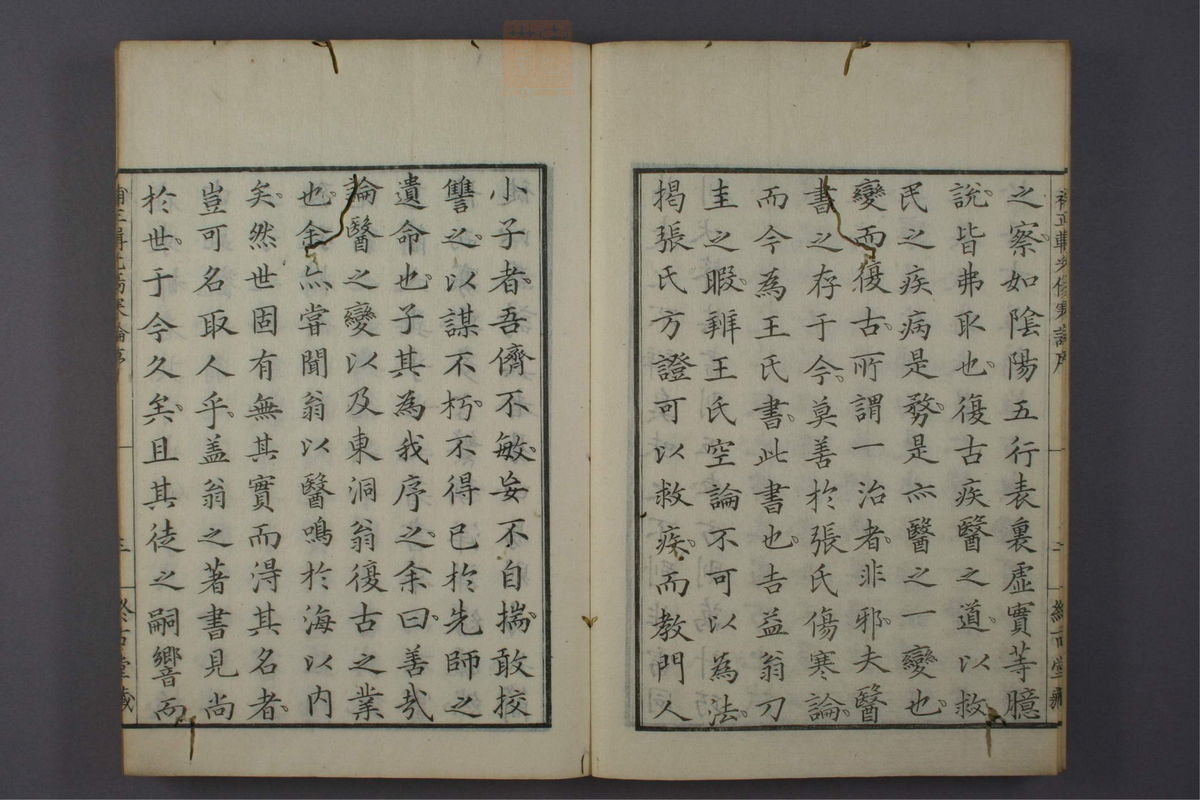 之察如陰陽五行表裏虛實等臆
說皆弗取也復古疾醫之道以救
民之疾病是務是亦醫之一變也
變而復古所謂一治者非邪夫醫
書之存于今莫善於張氏傷寒論
而今為王氏書此書也吉益翁刀
圭之暇辨王氏空論不可以為法
揭張氏方證可以救疾而教門人
小子者吾儕不敏妄不自揣敢挍
讐之以謀不朽不得已於先師之
遺命也子其為我序之余曰善哉
論醫之變以及東洞翁復古之業
也余亦嘗聞翁以醫鳴於海以內
矣然世固有無其實而淂其名者
豈可名取人乎盖翁之著書見尚
於世于今久矣且其徒之嗣響而